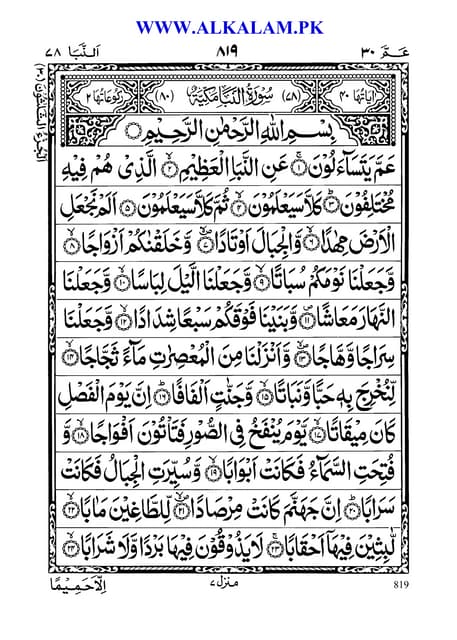 WWW.ALKALAM.PK
عمّ ٣٠ ٨١٩ النبا ٧٨
اٰیاتها ٤٠ (٧٨) سُوْرَةُ النَّبَاِ مَكِّيَّةٌ (٨٠) رکوعاتها ٢
بِسْمِ اللّٰهِ الرَّحْمٰنِ الرَّحِيْمِ
عَمَّ يَتَسَآءَلُوْنَ ۚ‏﴿۱﴾ عَنِ النَّبَاِ الْعَظِيْمِۙ‏﴿۲﴾ الَّذِىْ هُمْ فِيْهِ
مُخْتَلِفُوْنَؕ‏﴿۳﴾ كَلَّا سَيَعْلَمُوْنَۙ‏﴿۴﴾ ثُمَّ كَلَّا سَيَعْلَمُوْنَ‏﴿۵﴾ اَلَمْ نَجْعَلِ
الْاَرْضَ مِهٰدًاۙ‏﴿۶﴾ وَّالْجِبَالَ اَوْتَادًاۙ‏﴿۷﴾ وَّخَلَقْنٰكُمْ اَزْوَاجًاۙ‏﴿۸﴾
وَّجَعَلْنَا نَوْمَكُمْ سُبَاتًاۙ‏﴿۹﴾ وَّجَعَلْنَا الَّيْلَ لِبَاسًاۙ‏﴿۱۰﴾ وَّجَعَلْنَا
النَّهَارَ مَعَاشًا‏﴿۱۱﴾ وَّبَنَيْنَا فَوْقَكُمْ سَبْعًا شِدَادًاۙ‏﴿۱۲﴾ وَّجَعَلْنَا
سِرَاجًا وَّهَّاجًا‏﴿۱۳﴾ وَّاَنْزَلْنَا مِنَ الْمُعْصِرٰتِ مَآءً ثَجَّاجًاۙ‏﴿۱۴﴾
لِّنُخْرِجَ بِهٖ حَبًّا وَّنَبَاتًاۙ‏﴿۱۵﴾ وَّجَنّٰتٍ اَلْفَافًاؕ‏﴿۱۶﴾ اِنَّ يَوْمَ الْفَصْلِ
كَانَ مِيْقَاتًاۙ‏﴿۱۷﴾ يَّوْمَ يُنْفَخُ فِى الصُّوْرِ فَتَاْتُوْنَ اَفْوَاجًاۙ‏﴿۱۸﴾ وَّ
فُتِحَتِ السَّمَآءُ فَكَانَتْ اَبْوَابًاۙ‏﴿۱۹﴾ وَّسُيِّرَتِ الْجِبَالُ فَكَانَتْ
سَرَابًاؕ‏﴿۲۰﴾ اِنَّ جَهَنَّمَ كَانَتْ مِرْصَادًاۙ‏﴿۲۱﴾ لِّلطَّاغِيْنَ مَاٰبًاۙ‏﴿۲۲﴾
لّٰبِثِيْنَ فِيْهَاۤ اَحْقَابًاۚ‏﴿۲۳﴾ لَا يَذُوْقُوْنَ فِيْهَا بَرْدًا وَّلَا شَرَابًاۙ‏﴿۲۴﴾
819 منزل ٧ اِلَّا حَمِيْمًا